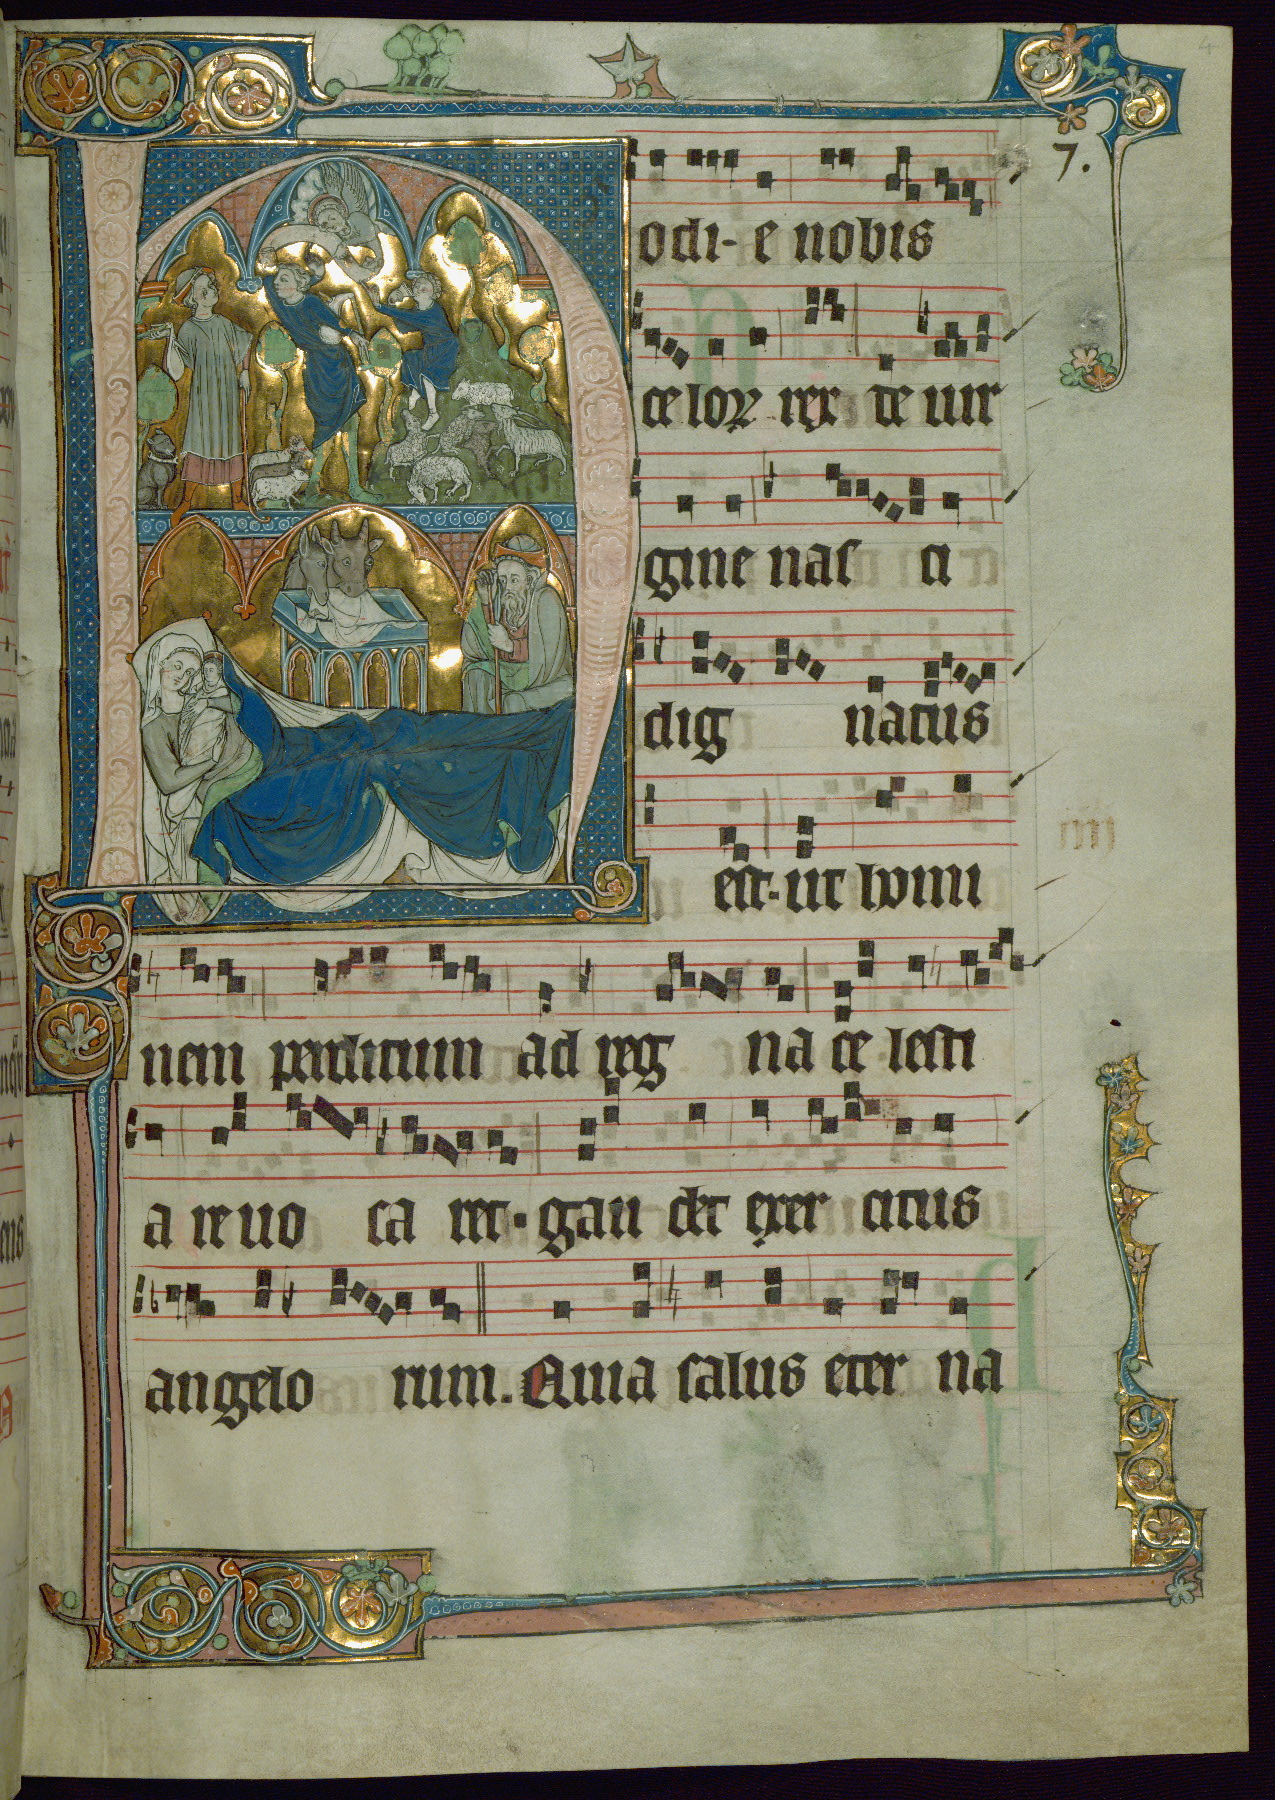 7.
Hodi-e nobis
celoꝝ rex de uir
gine nasci
dig natus
est·ut homi
nem perditum ad regna celesti
a reuocaret·gaudet exercitus
angelorum. Quia salus eterna